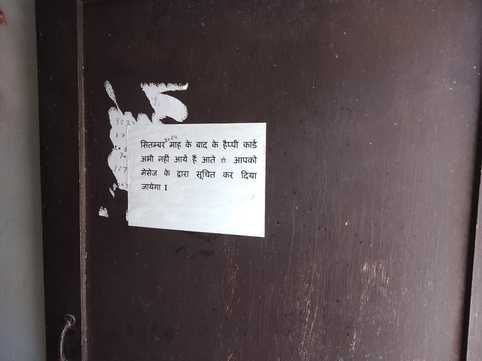 सितम्बर माह के बाद के हैप्पी कार्ड
अभी नहीं आये हैं आते ही आपको
मेसेज के द्वारा सूचित कर दिया
जायेगा 1